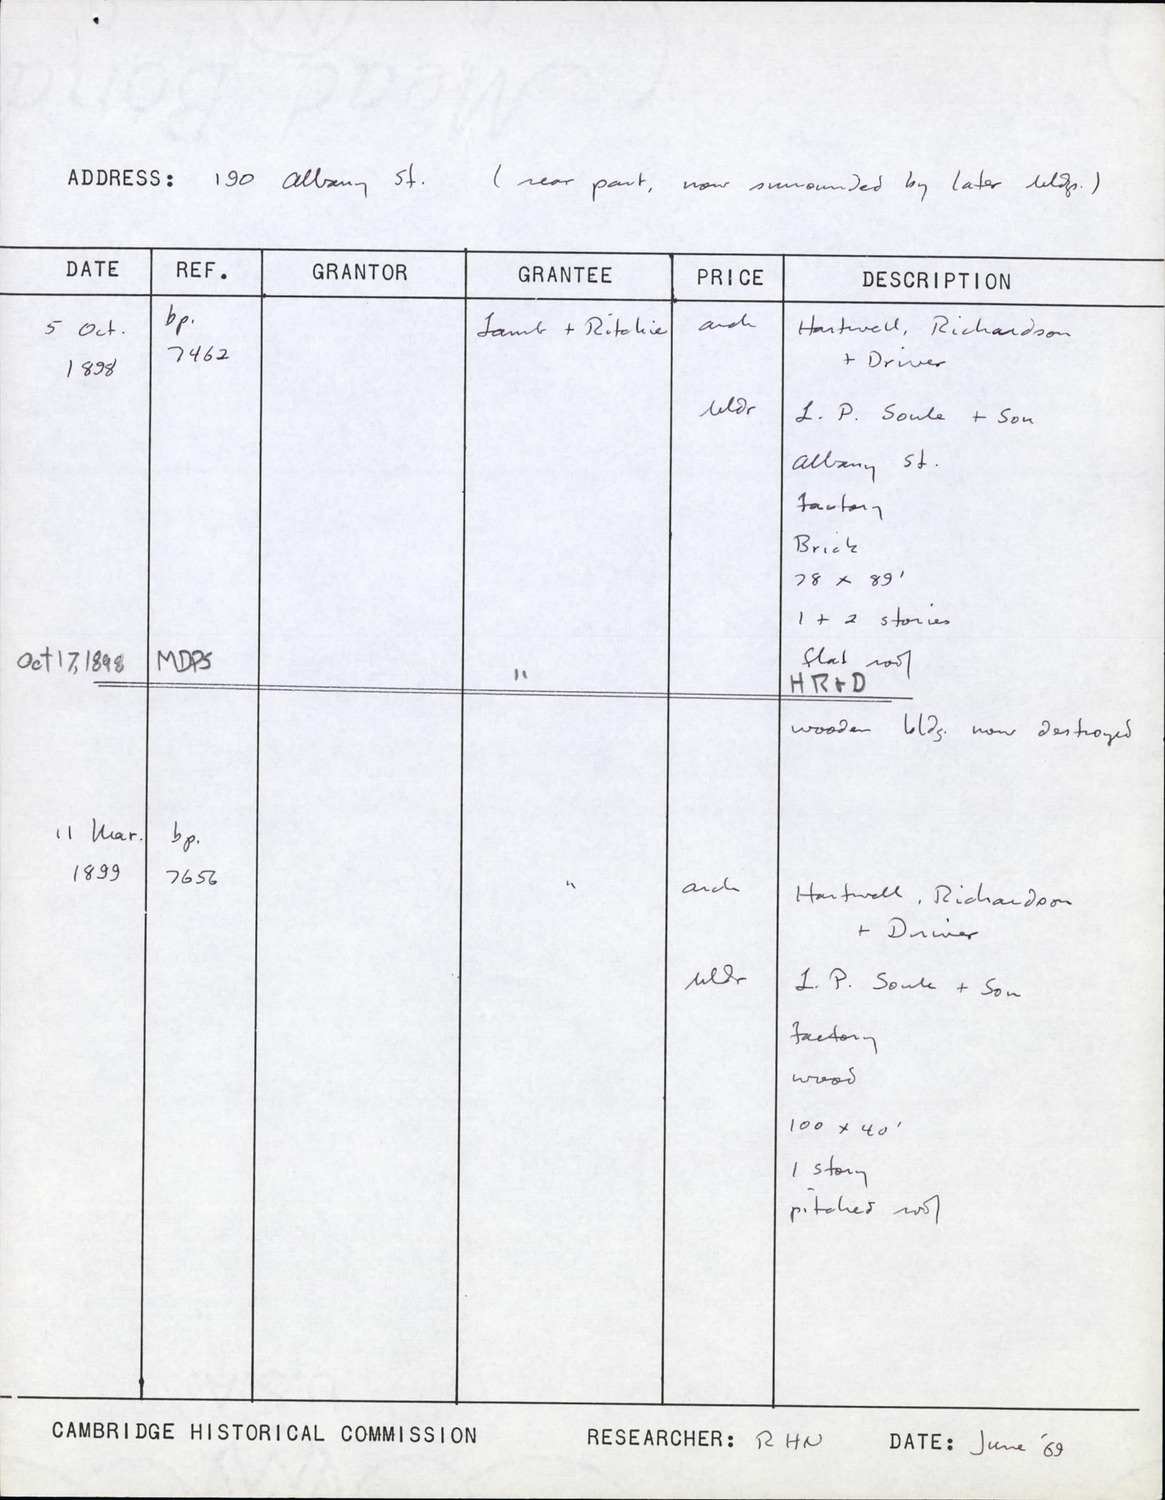 ADDRESS: 190 Albany St. (rear part, now surrounded by later bldgs.)
DATE REF. GRANTOR GRANTEE PRICE DESCRIPTION
5 Oct. bp. Lamb + Ritchie arch Hartwell, Richardson
1898 7462 + Driver
bldr L. P. Soule + Son
Albany St.
factory
Brick
78 x 89'
1 + 2 stories
flat roof
Oct 17, 1898 MDPS " HR+D
wooden bldg. now destroyed
11 Mar. bp.
1899 7656 " arch Hartwell, Richardson
+ Driver
bldr L. P. Soule + Son
factory
wood
100 x 40'
1 story
pitched roof
CAMBRIDGE HISTORICAL COMMISSION RESEARCHER: RHN DATE: June '69